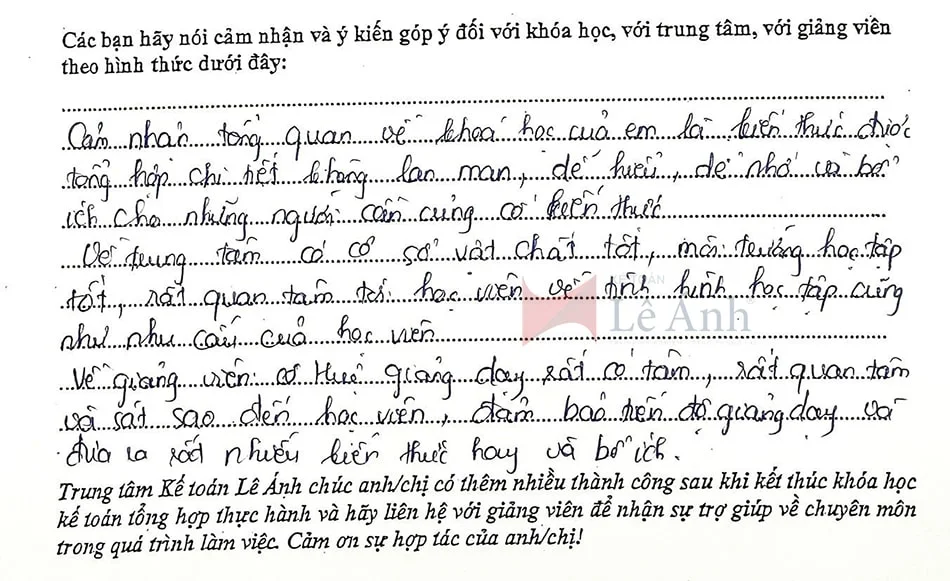 Các bạn hãy nói cảm nhận và ý kiến góp ý đối với khóa học, với trung tâm, với giảng viên
theo hình thức dưới đây:
Cảm nhận tổng quan về khoá học của em là kiến thức được
tổng hợp chi tiết không lan man, dễ hiểu, dễ nhớ và bổ
ích cho những người cần củng cố kiến thức
Về trung tâm có cơ sở vật chất tốt, môi trường học tập
tốt, rất quan tâm tới học viên về tình hình học tập cũng
như nhu cầu của học viên
KẾ TOÁN
Lê Ánh
Về giảng viên: cô Huế giảng dạy rất có tâm, rất quan tâm
và sát sao đến học viên, đảm bảo tiến độ giảng dạy và
đưa ra rất nhiều kiến thức hay và bổ ích.
Trung tâm Kế toán Lê Ánh chúc anh/chị có thêm nhiều thành công sau khi kết thúc khóa học
kế toán tổng hợp thực hành và hãy liên hệ với giảng viên để nhận sự trợ giúp về chuyên môn
trong quá trình làm việc. Cảm ơn sự hợp tác của anh/chị!